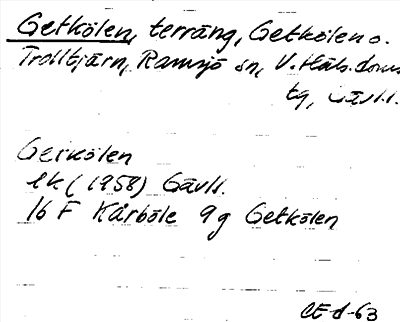 Getkölen, terräng, Getkölen o.
Trolltjärn, Ramsjö sn, V. Häls. doms
tg, Gävl.l.
Getkölen
lk (1958) Gävll.
16 F Kårböle 9g Getkölen
CE-d-63